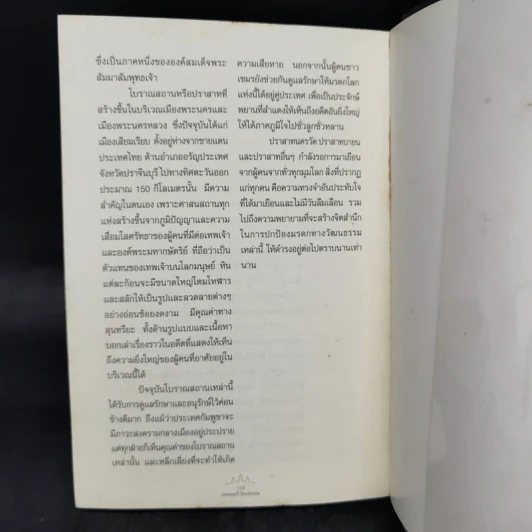 ซึ่งเป็นภาคหนึ่งขององค์สมเด็จพระ
สัมมาสัมพุทธเจ้า
โบราณสถานหรือปราสาทที่
สร้างขึ้นในบริเวณเมืองพระนครและ
เมืองพระนครหลวง ซึ่งปัจจุบันได้แก่
เมืองเสียมเรียบ ตั้งอยู่ห่างจากชายแดน
ประเทศไทย ด้านอำเภออรัญประเทศ
จังหวัดปราจีนบุรี ไปทางทิศตะวันออก
ประมาณ 150 กิโลเมตรนั้น มีความ
สำคัญในตนเอง เพราะศาสนสถานทุก
แห่งสร้างขึ้นจากภูมิปัญญาและความ
เลื่อมใสศรัทธาของผู้คนที่มีต่อเทพเจ้า
และองค์พระมหากษัตริย์ ที่ถือว่าเป็น
ตัวแทนของเทพเจ้าบนโลกมนุษย์ หิน
แต่ละก้อนจะมีขนาดใหญ่โตมโหฬาร
และสลักให้เป็นรูปและลวดลายต่างๆ
อย่างอ่อนช้อยงดงาม มีคุณค่าทาง
สุนทรียะ ทั้งด้านรูปแบบและเนื้อหา
บอกเล่าเรื่องราวในอดีตที่แสดงให้เห็น
ถึงความยิ่งใหญ่ของผู้คนที่อาศัยอยู่ใน
บริเวณนี้ได้
ปัจจุบันโบราณสถานเหล่านี้
ได้รับการดูแลรักษาและอนุรักษ์ไว้ค่อน
ข้างดีมาก ถึงแม้ว่าประเทศกัมพูชาจะ
มีภาวะสงครามกลางเมืองอยู่ประปราย
แต่ทุกฝ่ายก็เห็นคุณค่าของโบราณสถาน
เหล่านั้น และหลีกเลี่ยงที่จะทำให้เกิด
ความเสียหาย นอกจากนั้นผู้คนชาว
เขมรยังช่วยกันดูแลรักษาให้มรดกโลก
แห่งนี้ได้อยู่คู่ประเทศ เพื่อเป็นประจักษ์
พยานที่สำแดงให้เห็นถึงอดีตอันยิ่งใหญ่
ให้ได้ภาคภูมิใจไปชั่วลูกชั่วหลาน
ปราสาทนครวัด ปราสาทบายน
และปราสาทอื่นๆ กำลังรอการมาเยือน
จากผู้คนจากทั่วทุกมุมโลก สิ่งที่ปรากฏ
แก่ทุกคน คือความทรงจำอันประทับใจ
ที่ได้มาเยือนและไม่มีวันลืมเลือน รวม
ไปถึงความพยายามที่จะสร้างจิตสำนึก
ในการปกป้องมรดกทางวัฒนธรรม
เหล่านี้ ให้ดำรงอยู่ต่อไปตราบนานเท่า
นาน